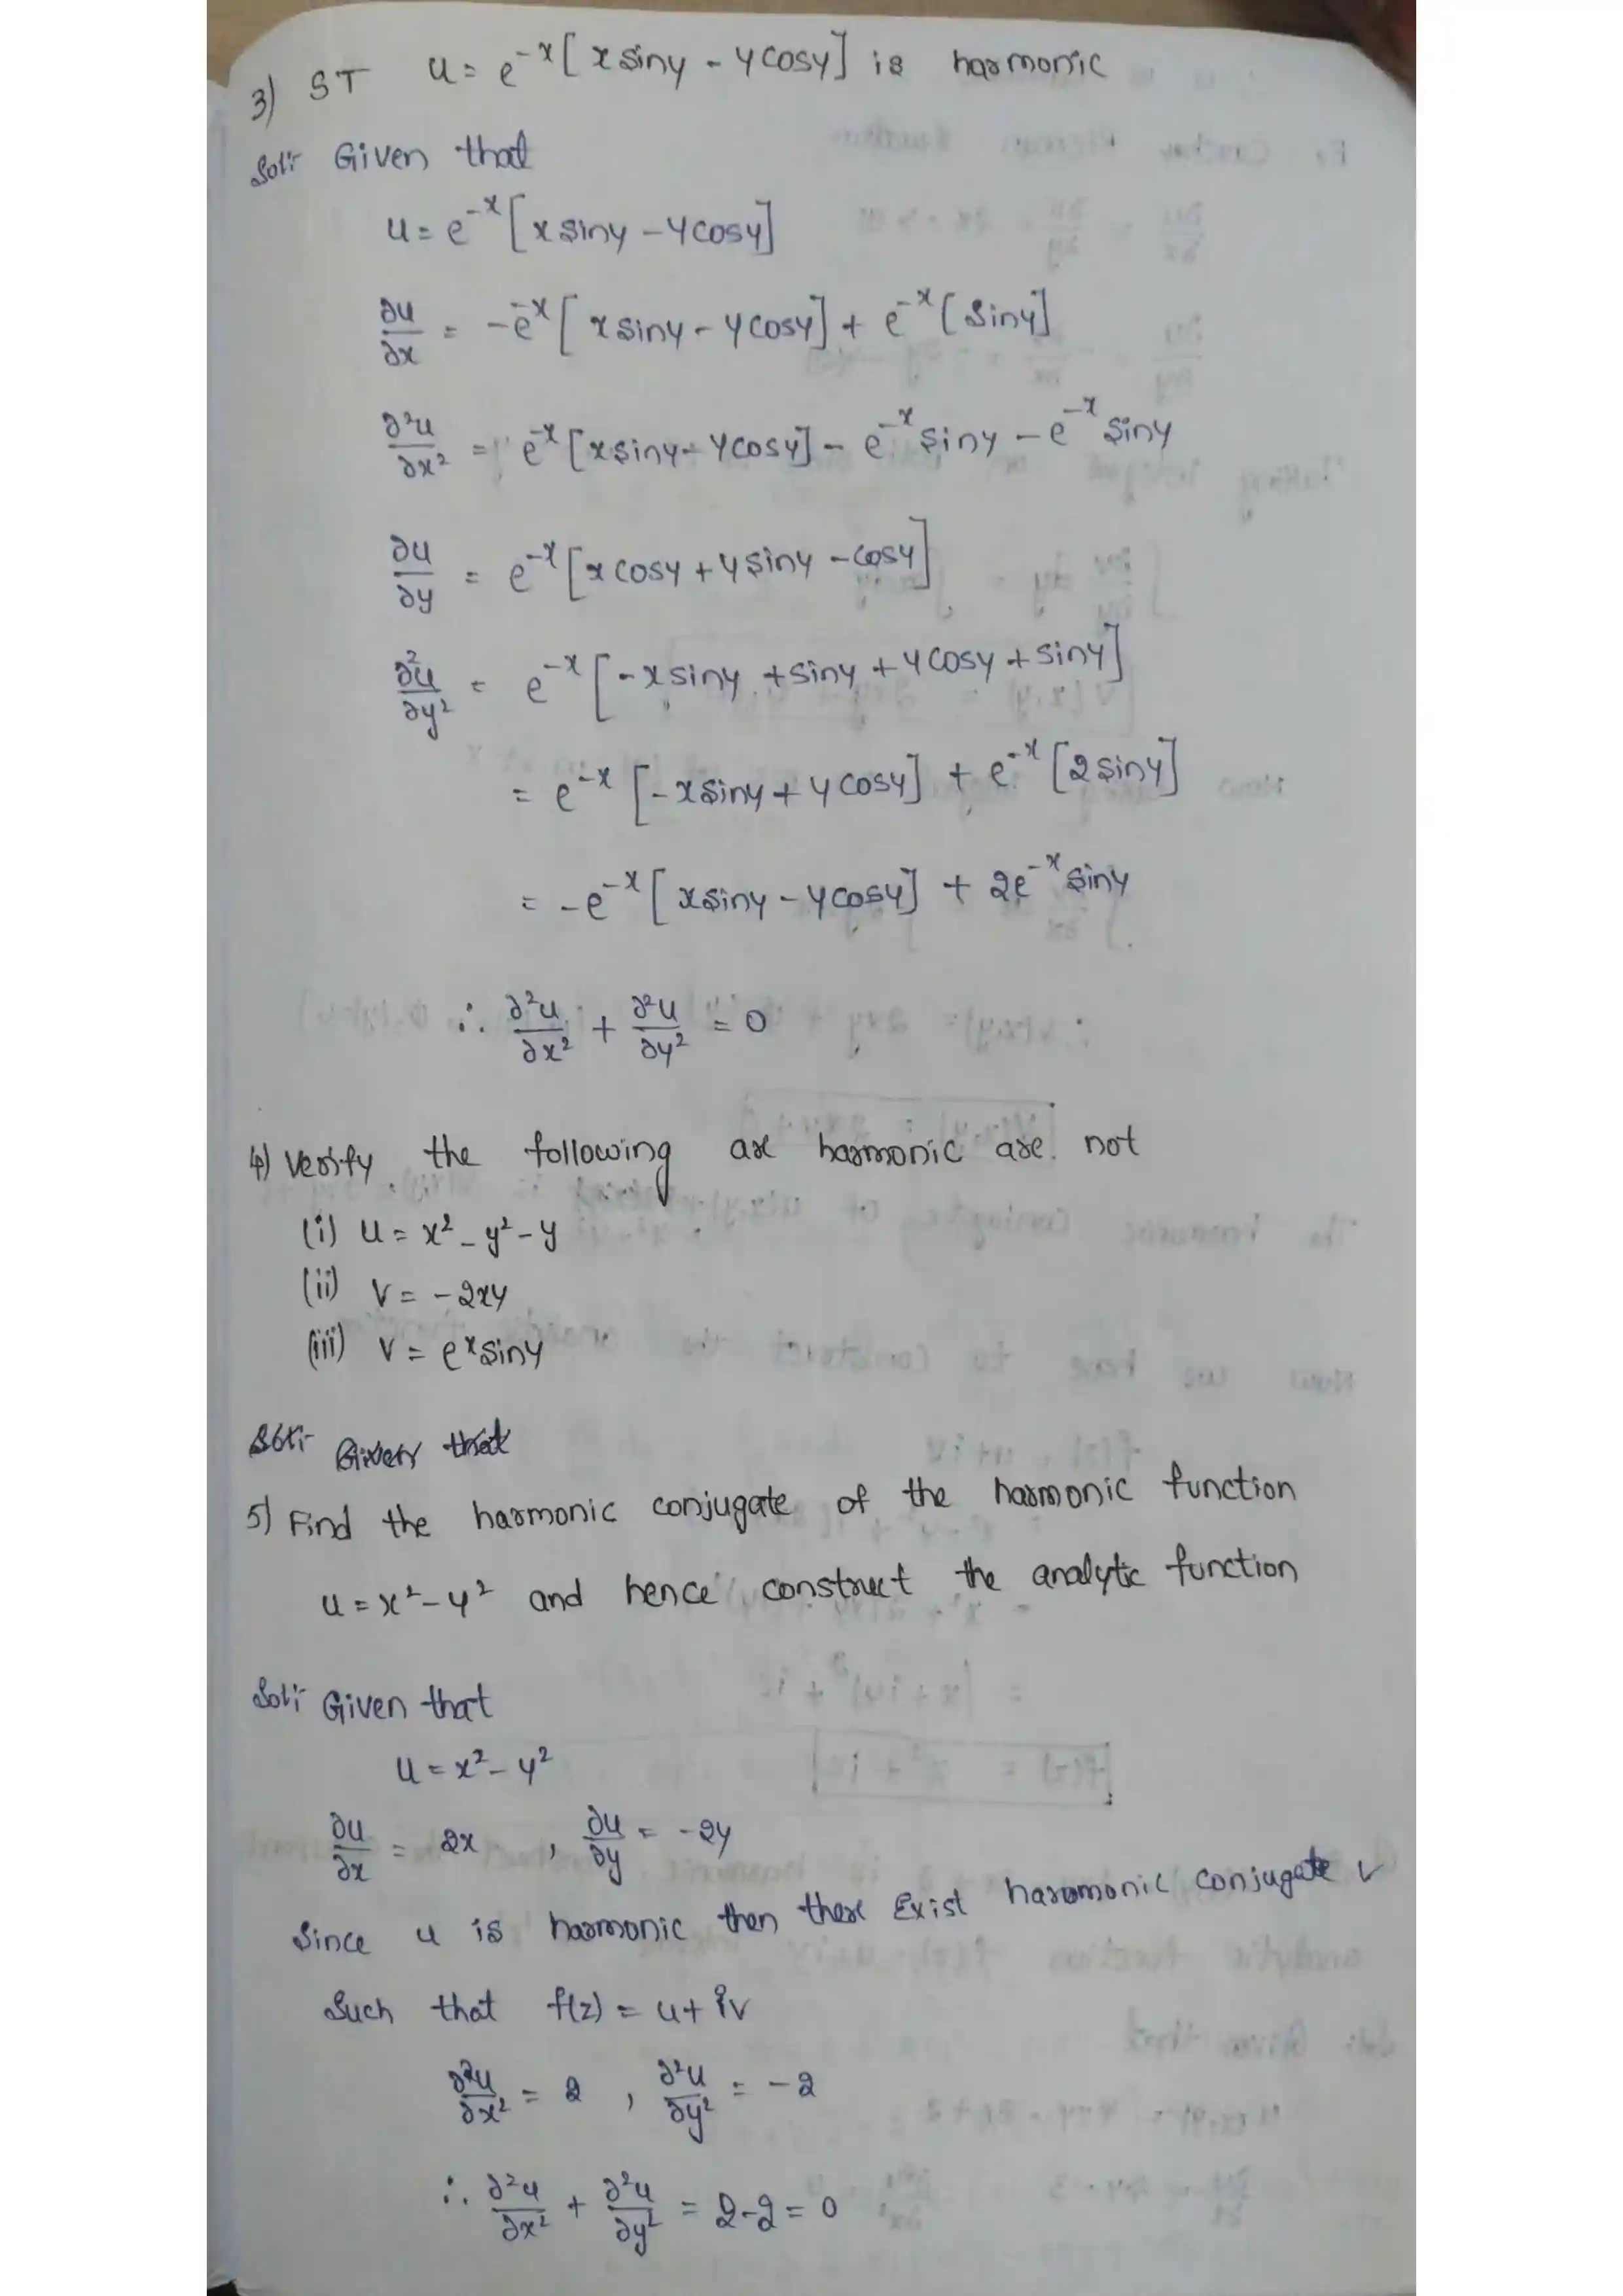 3) ST u = e^{-x}[x siny - y cosy] is harmonic
Sol:- Given that
u = e^{-x}[x siny - y cosy]
∂u/∂x = -e^{-x}[x siny - y cosy] + e^{-x}[siny]
∂²u/∂x² = e^{-x}[x siny - y cosy] - e^{-x} siny - e^{-x} siny
∂u/∂y = e^{-x}[x cosy + y siny - cosy]
∂²u/∂y² = e^{-x}[-x siny + siny + y cosy + siny]
= e^{-x}[-x siny + y cosy] + e^{-x}[2 siny]
= -e^{-x}[x siny - y cosy] + 2e^{-x} siny
∴ ∂²u/∂x² + ∂²u/∂y² = 0
4) Verify the following are harmonic are not
(i) u = x² - y² - y
(ii) v = -2xy
(iii) v = e^x siny
Sol:- Given that
5) Find the harmonic conjugate of the harmonic function
u = x² - y² and hence construct the analytic function
Sol:- Given that
u = x² - y²
∂u/∂x = 2x , ∂u/∂y = -2y
Since u is harmonic then there Exist harmonic conjugate v
Such that f(z) = u + iv
∂²u/∂x² = 2 , ∂²u/∂y² = -2
∴ ∂²u/∂x² + ∂²u/∂y² = 2-2 = 0